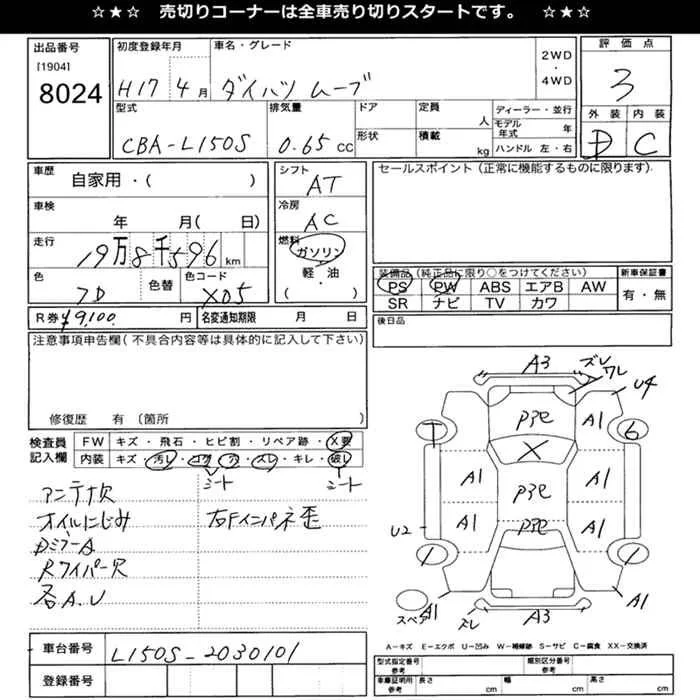 ☆ ★ ☆ 売切りコーナーは全車売り切りスタートです。 ☆ ★ ☆
出品番号 初度登録年月 車名・グレード 2WD ・ 4WD 評価点
[1904]
8024 H17 4月 ダイハツ ムーブ 3
型式 排気量 ドア 定員 人 ディーラー・並行 外装 内装
CBA-L150S 0.65 CC 形状 積載 kg モデル年式 年 D C
ハンドル 左・右
車歴 自家用・( ) シフト AT セールスポイント (正常に機能するものに限ります)
車検 年 月( 日) 冷房 AC
走行 19万8千596 km 燃料 ガソリン
軽・油
( )
色 色替 色コード X05 装備品 (純正品に限り○をつけてください) 新車保証書
PS PW ABS エアB AW 有・無
SR ナビ TV カワ
R券 ¥9,100 円 名変通知期限 月 日 後日品
注意事項申告欄 (不具合内容等は具体的に記入して下さい)
修復歴 有 (箇所 )
検査員 FW キズ・飛石・ヒビ割・リペア跡・X要
記入欄 内装 キズ・汚レ・コゲ・穴・スレ・キレ・破レ
シート シート
アンテナ欠
オイルにじみ 右Fインパネ歪
Rワイパー欠
各A.U
A3 ズレ ワレ U4
T A1 6
X
A1 A1
A1 A1
U2
スペア A1 ズレ A3 A1
車台番号 L150S-2030101
登録番号
A-キズ E-エクボ U-凹み W-補修跡 S-サビ C-腐食 XX-交換済
型式指定番号 参考 類別区分番号 参考
車庫証明用 参考 長さ cm 幅 cm 高さ cm